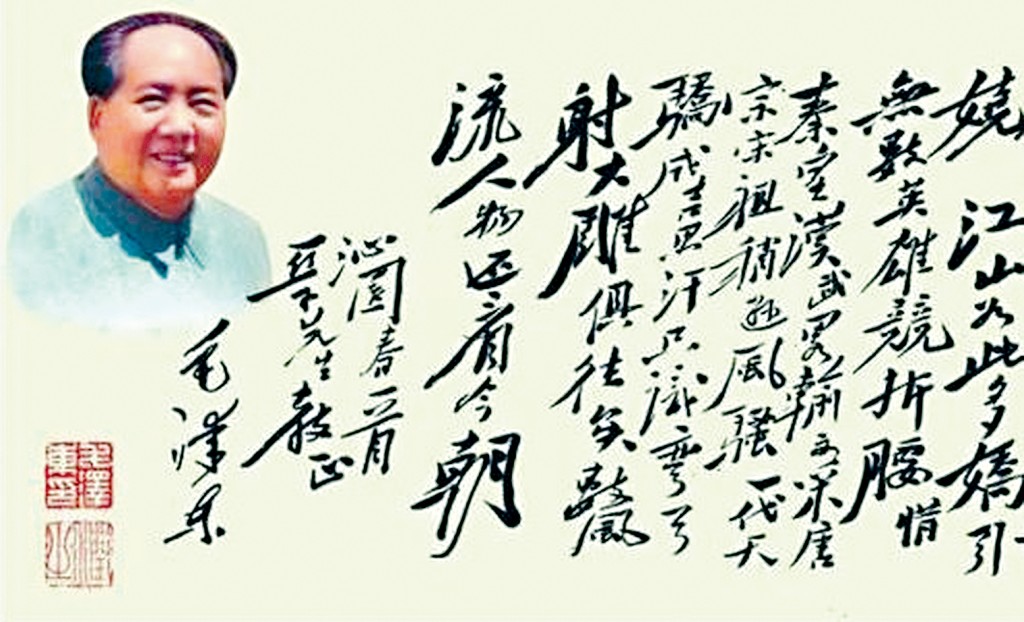 嬈 江山如此多嬌引
無數英雄競折腰惜
秦皇漢武畧輸文采唐
宗宋祖稍遜風騷一代天
驕成吉思汗只識彎弓
射大雕俱往矣數風
流人物还看今朝
沁園春一首
亞子先生教正
毛澤东
毛澤東印
潤之